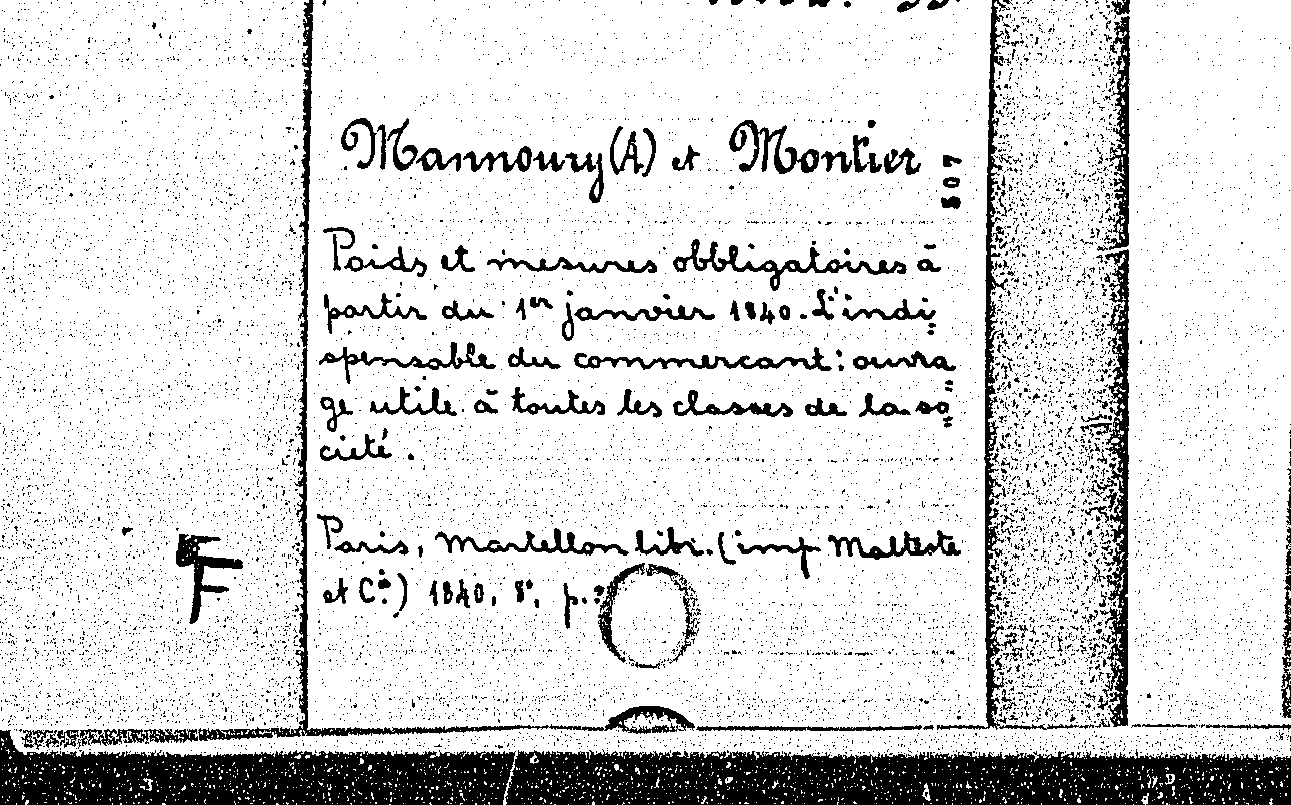 Mannoury (A) et Montier
507
Poids et mesures obbligatoires à
partir du 1er janvier 1840. L'indi
spensable du commercant: ouvra
ge utile à toutes les classes de la so
cieté.
Paris, Martellon libr. (imp Malteste
et Cie.) 1840, 8°, p.?
F